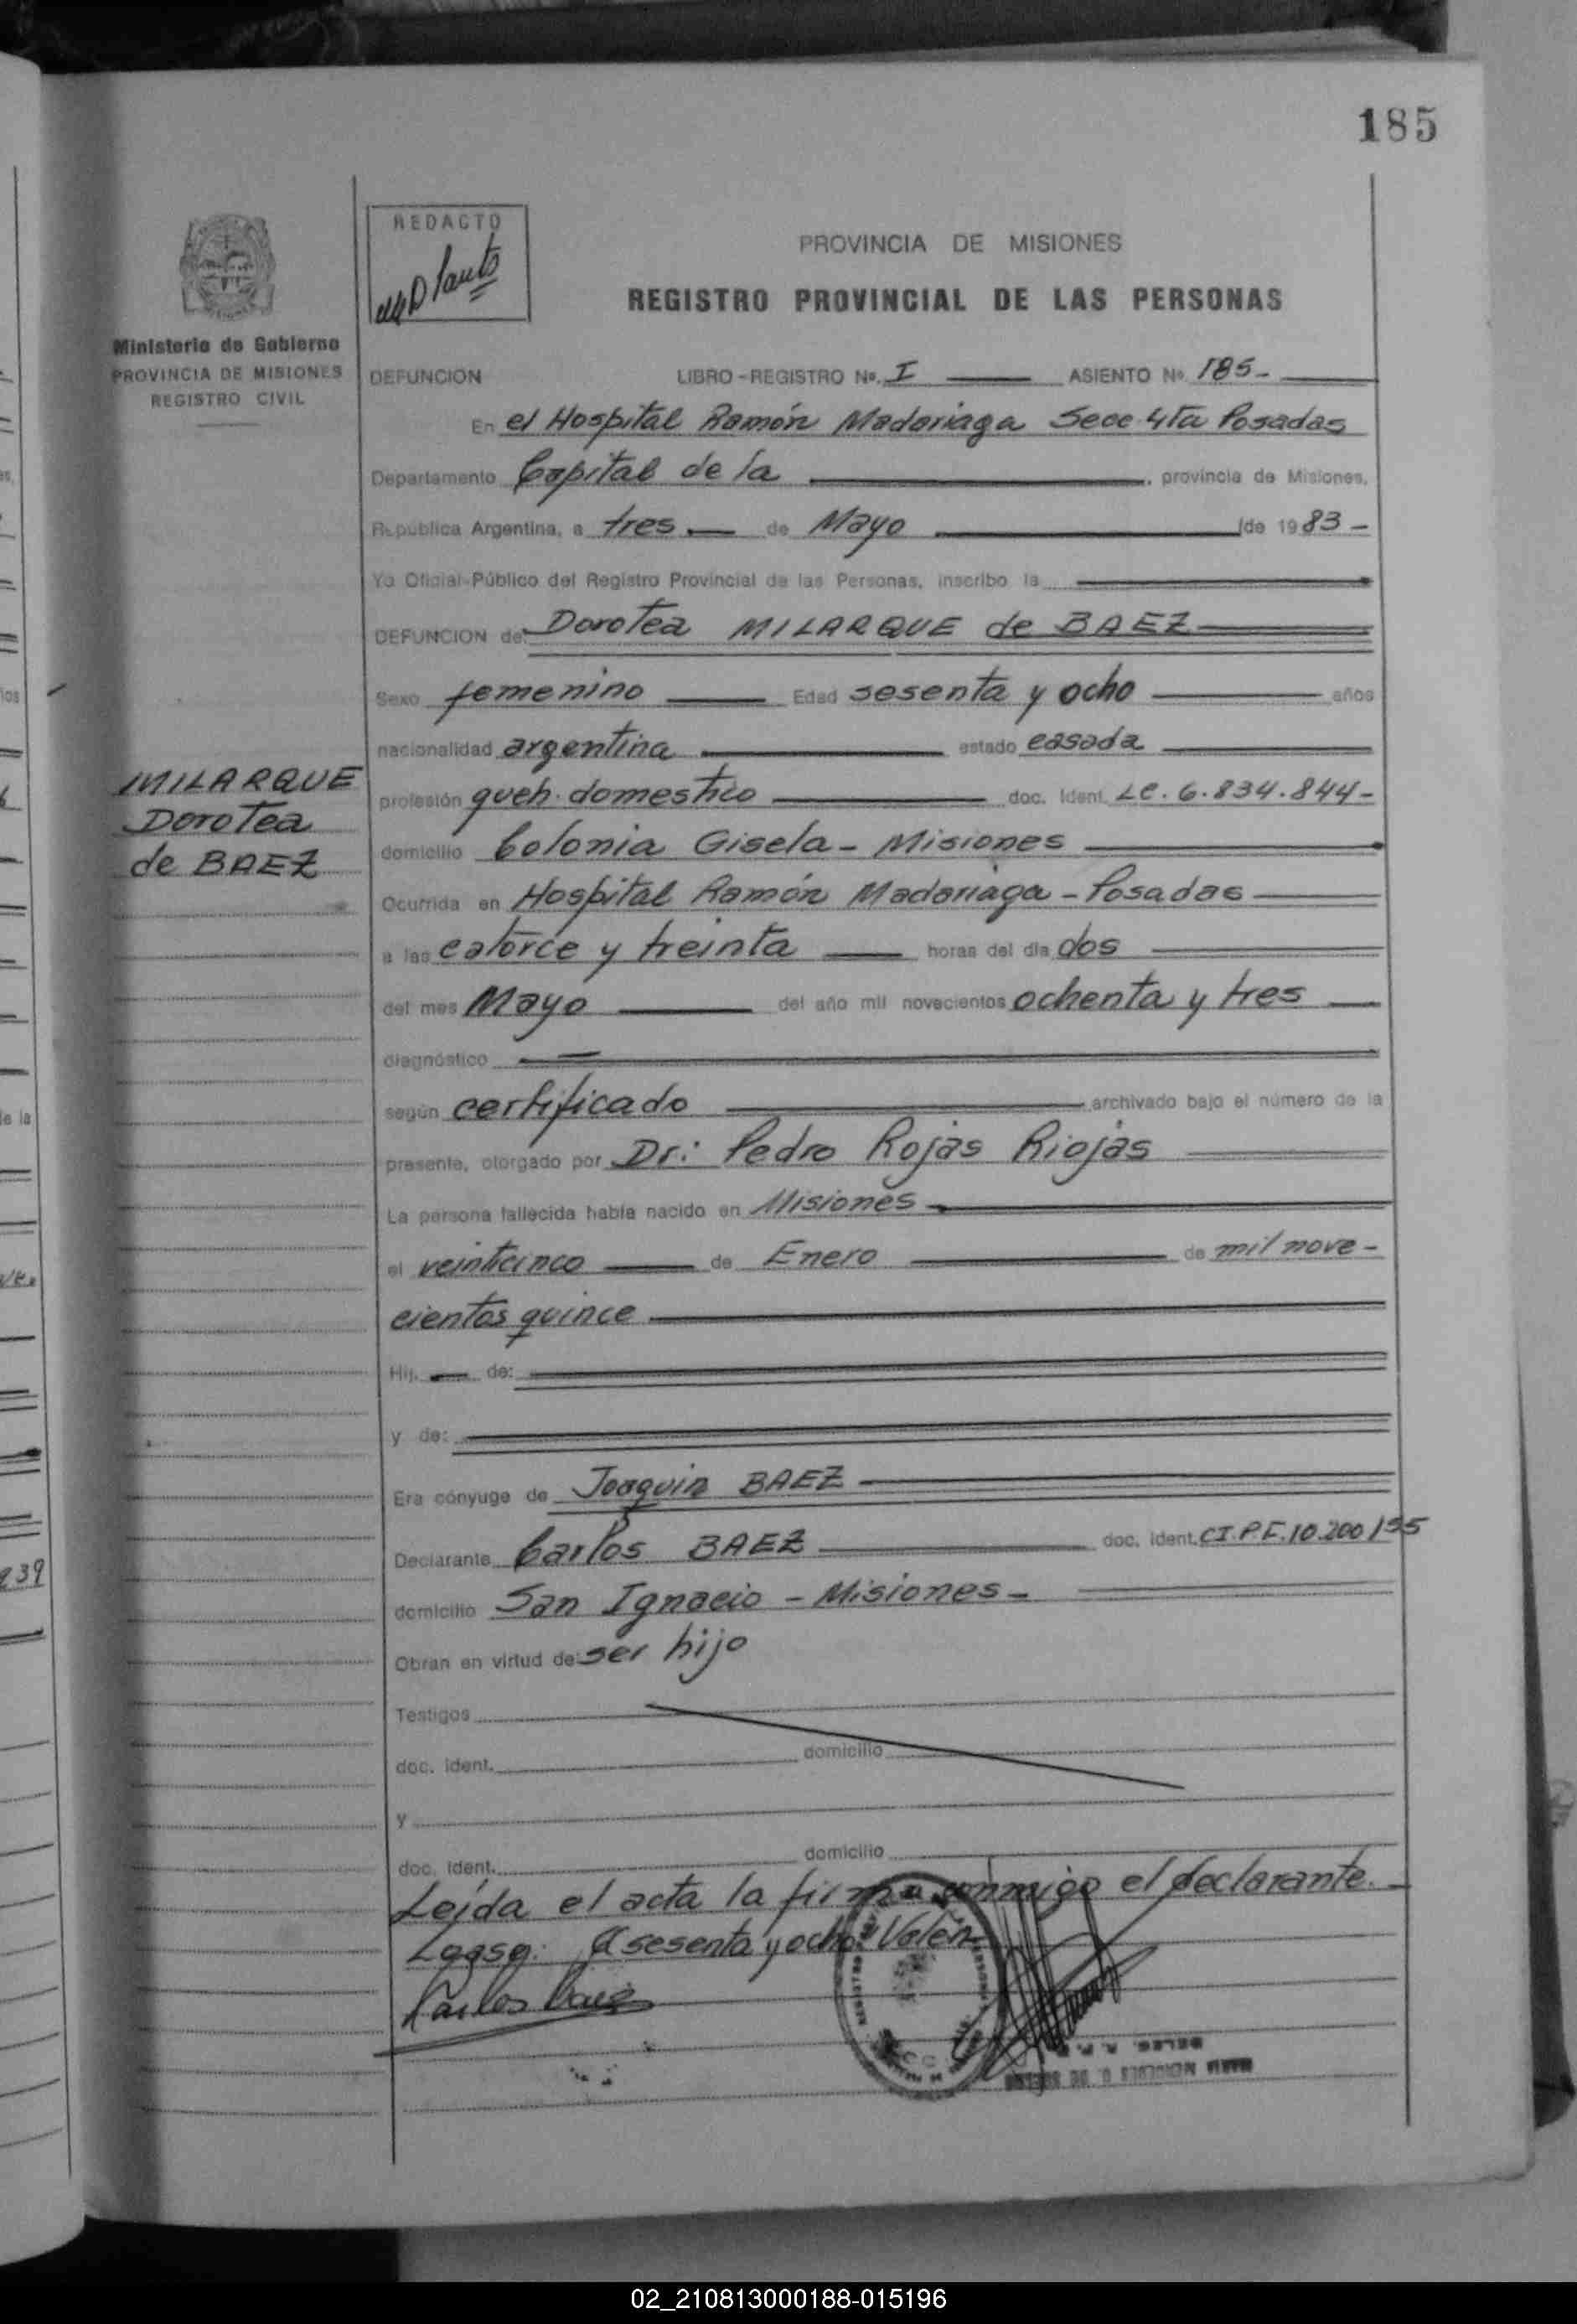 185
REDACTO
PROVINCIA DE MISIONES
REGISTRO PROVINCIAL DE LAS PERSONAS
Ministerio de Gobierno
PROVINCIA DE MISIONES
REGISTRO CIVIL
DEFUNCION LIBRO-REGISTRO Nº. I ASIENTO Nº 185-
En el Hospital Ramón Madariaga Secc 4ta Posadas
Departamento Capital de la , provincia de Misiones,
República Argentina, a tres de Mayo de 1983-
Yo Oficial Público del Registro Provincial de las Personas, inscribo la
DEFUNCION de: Dorotea MILARQUE de BAEZ
Sexo femenino Edad sesenta y ocho años
nacionalidad argentina estado casada
MILARQUE
Dorotea
de BAEZ
profesión queh. domestico doc. Ident. LC. 6.834.844-
domicilio Colonia Gisela - Misiones
Ocurrida en Hospital Ramón Madariaga - Posadas
a las catorce y treinta horas del día dos
del mes Mayo del año mil novecientos ochenta y tres
diagnóstico
según certificado archivado bajo el número de la
presente, otorgado por Dr: Pedro Rojas Riojas
La persona fallecida había nacido en Misiones
el veinticinco de Enero de mil nove-
cientos quince
Hij. de:
y de:
Era cónyuge de Joaquin BAEZ
Declarante Carlos BAEZ doc. ident. CI.P.E.10.200
domicilio San Ignacio - Misiones-
Obran en virtud de: ser hijo
Testigos
doc. ident. domicilio
y
doc. ident. domicilio
Leída el acta la firma conmigo el declarante.
sesenta y ocho: Valen
Carlos Baez
239
02_210813000188-015196